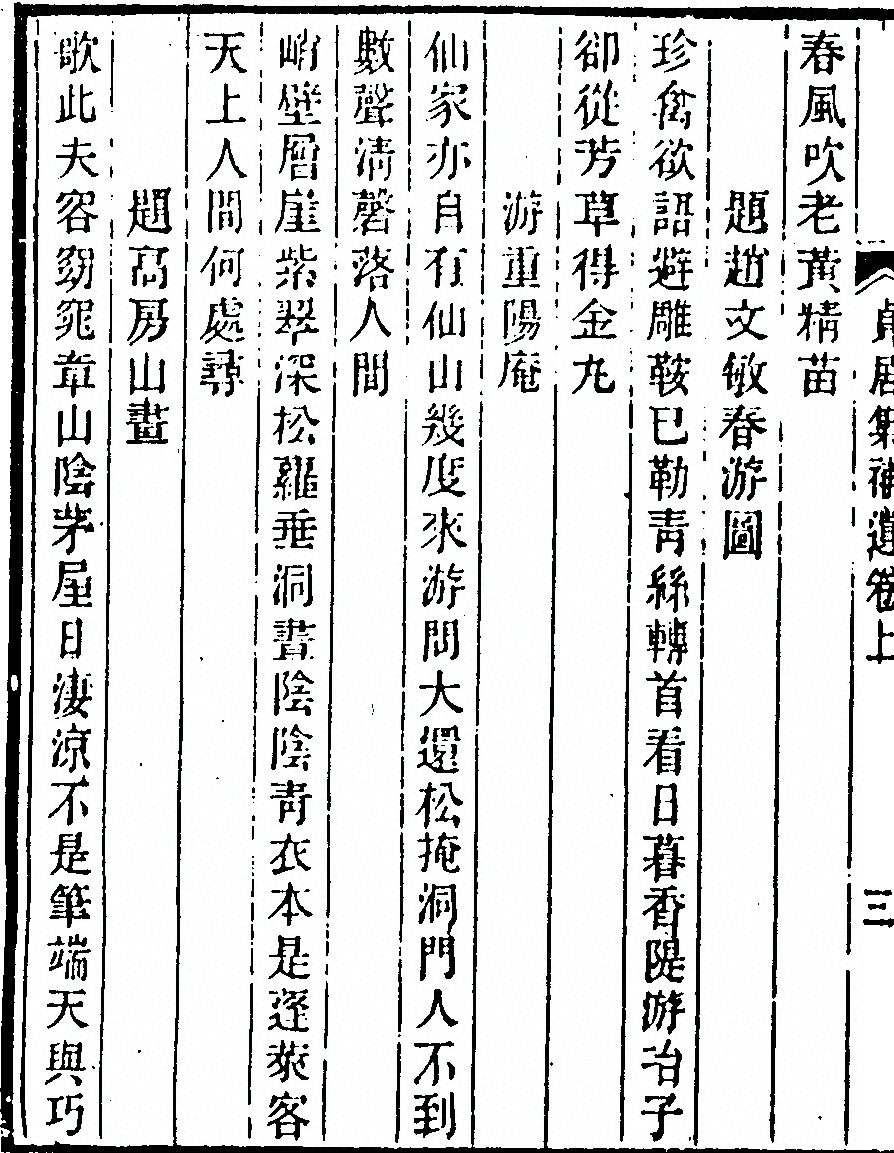 貞居集補遺卷上 三
春風吹老黃精苗
題趙文敏春游圖
珍禽欲語避雕鞍已勒青絲轉首看日暮香隄游冶子
卻從芳草得金丸
游重陽庵
仙家亦自有仙山幾度來游問大還松掩洞門人不到
數聲清磬落人間
峭壁層崖紫翠深松羅垂洞晝陰陰青衣本是蓬萊客
天上人間何處尋
題高房山畫
歌此夫容窈窕章山陰茅屋日淒涼不是筆端天與巧